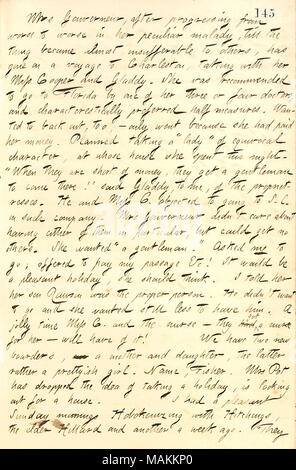 145
Mrs Gouverneur, after progressing from
worse to worse in her peculiar malady, till the
thing became almost insufferable to others, has
gone on a voyage to Charleston, taking with her
Miss Cooper and Gladdy. She was recommended
to go to Florida by one of her three or four doctors
and characteristically preferred half measures. Wan-
ted to back out, too, — only went because she had paid
her money. Planned "taking a lady" of equivocal
character, at whose house she spent this night.
"When they are short of money, they get a gentleman
to come there!!" said Gladdy to me, of the propriet-
resses. He and Miss C. objected to going to S.C.
in such company. Mrs Gouverneur didn't care about
having either of them in particular, but could get no
others. She wanted "a gentleman." Asked me to
go; offered to pay my passage &c! It would be
a pleasant holiday, she should think. I told her
her son Rawson was the proper person. He didn't want
to go and she wanted still less to have him. A
jolly time Miss C. and the nurse — they had a nurse
for her — will have of it! We have two new
boarders, — a mother and daughter, the latter
rather a prettyish girl. Name, Fisher. Mrs Pot
has dropped the idea of taking a holiday, is looking
out for a house. I had a pleasant
Sunday morning's Hobokening with Hitchings,
the elder Hillard and another a week ago. They
alamy
Image ID: MAKKP0
www.alamy.com